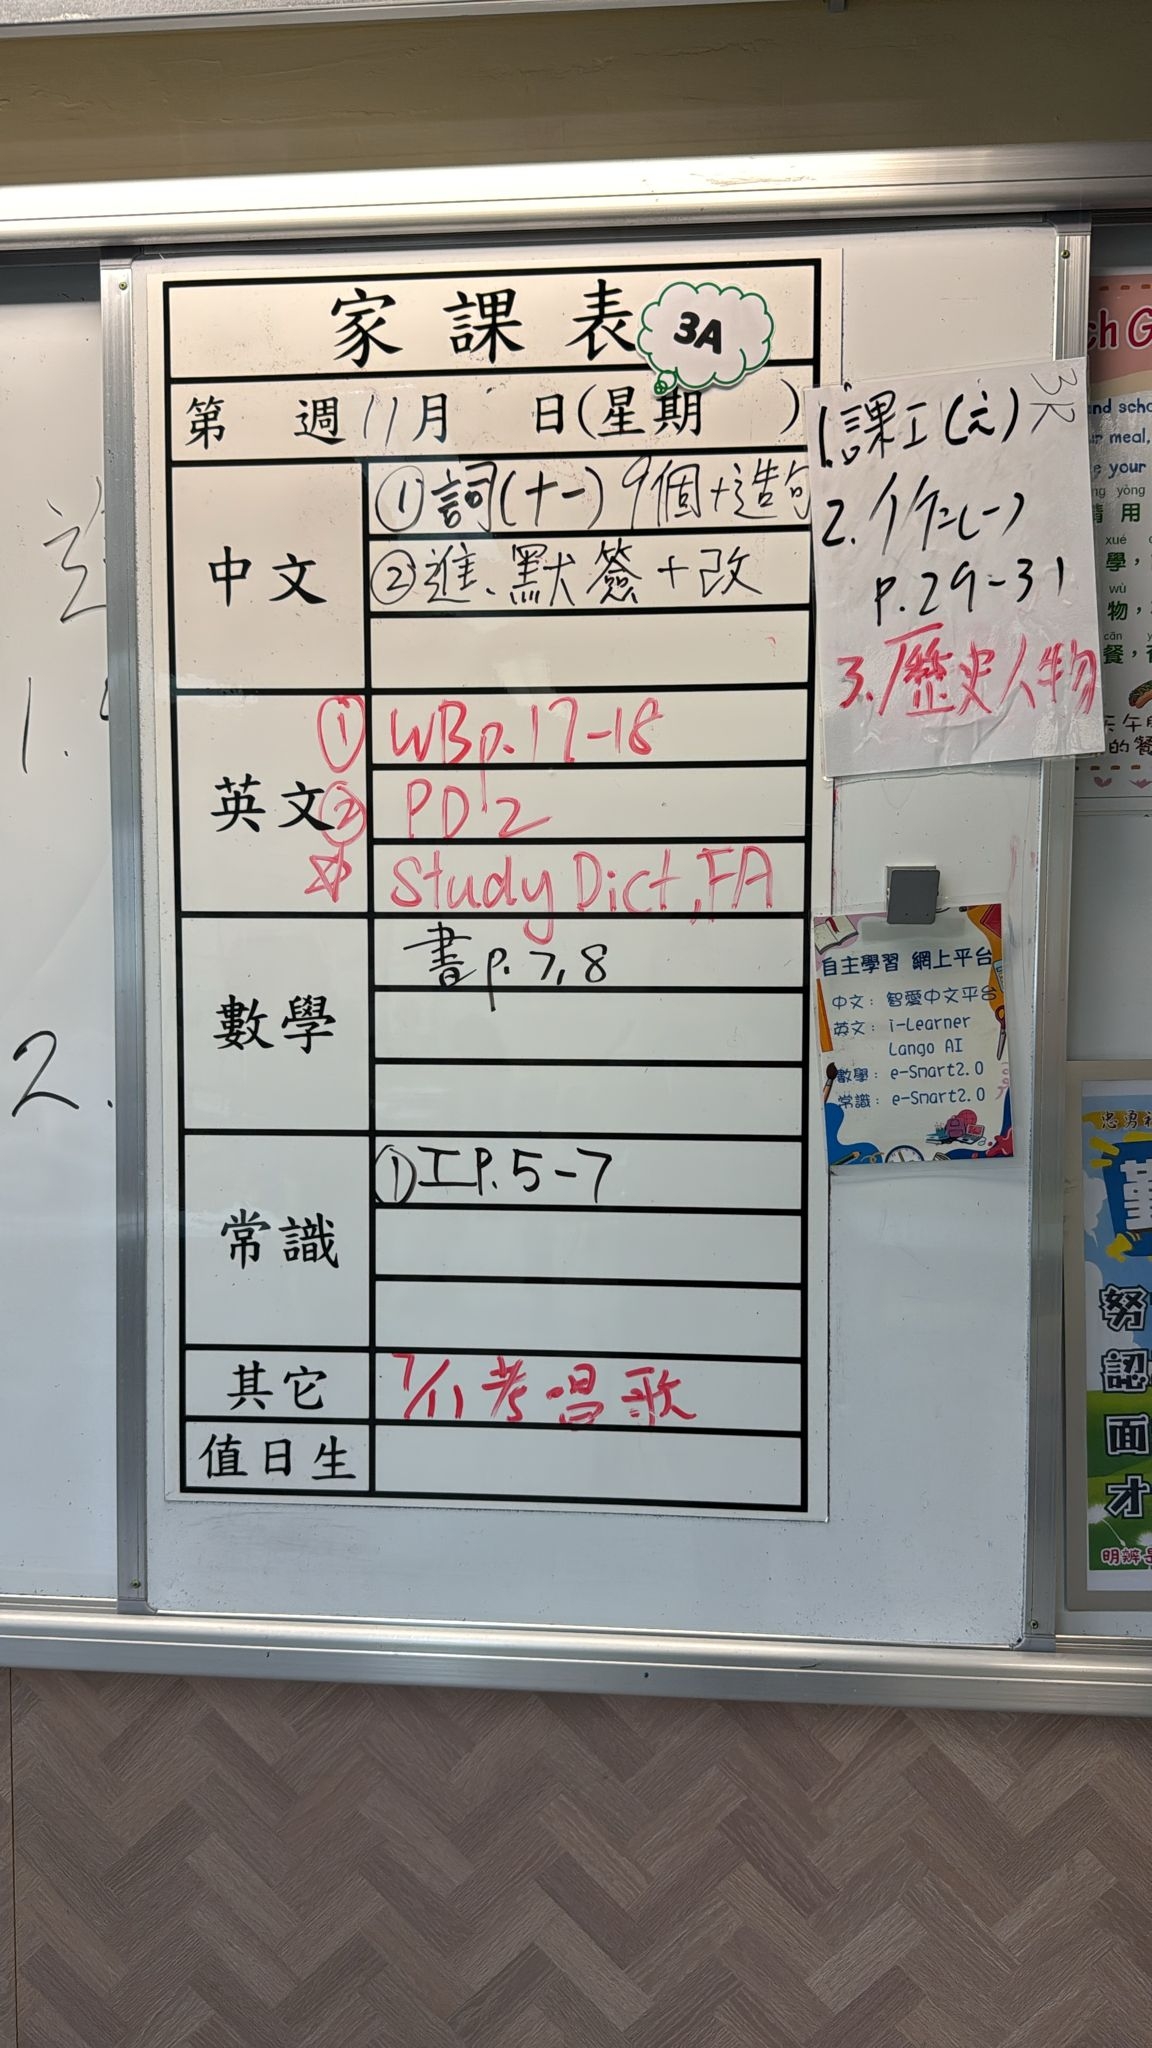 家課表
3A
第 週 11月 日(星期 )
中文
①詞(十一) 9個+造句
②進、默簽+改
英文
① WB p.17-18
② PD 2
☆ Study Dict, FA
數學
書 p. 7, 8
常識
①工P. 5-7
其它
7/11 考唱歌
值日生
3R
1.課工(六)
2.
p.29-31
3.歷史人物
自主學習 網上平台
中文: 智愛中文平台
英文: i-Learner
Lango AI
數學: e-Smart2.0
常識: e-Smart2.0
1.
2.
ch G
nd scho
ur meal,
e your
ng yòng
用
xué
學,
wù
物,
cān
餐,
天午
的餐
忠勇
勤
努
認
面
才
明辨